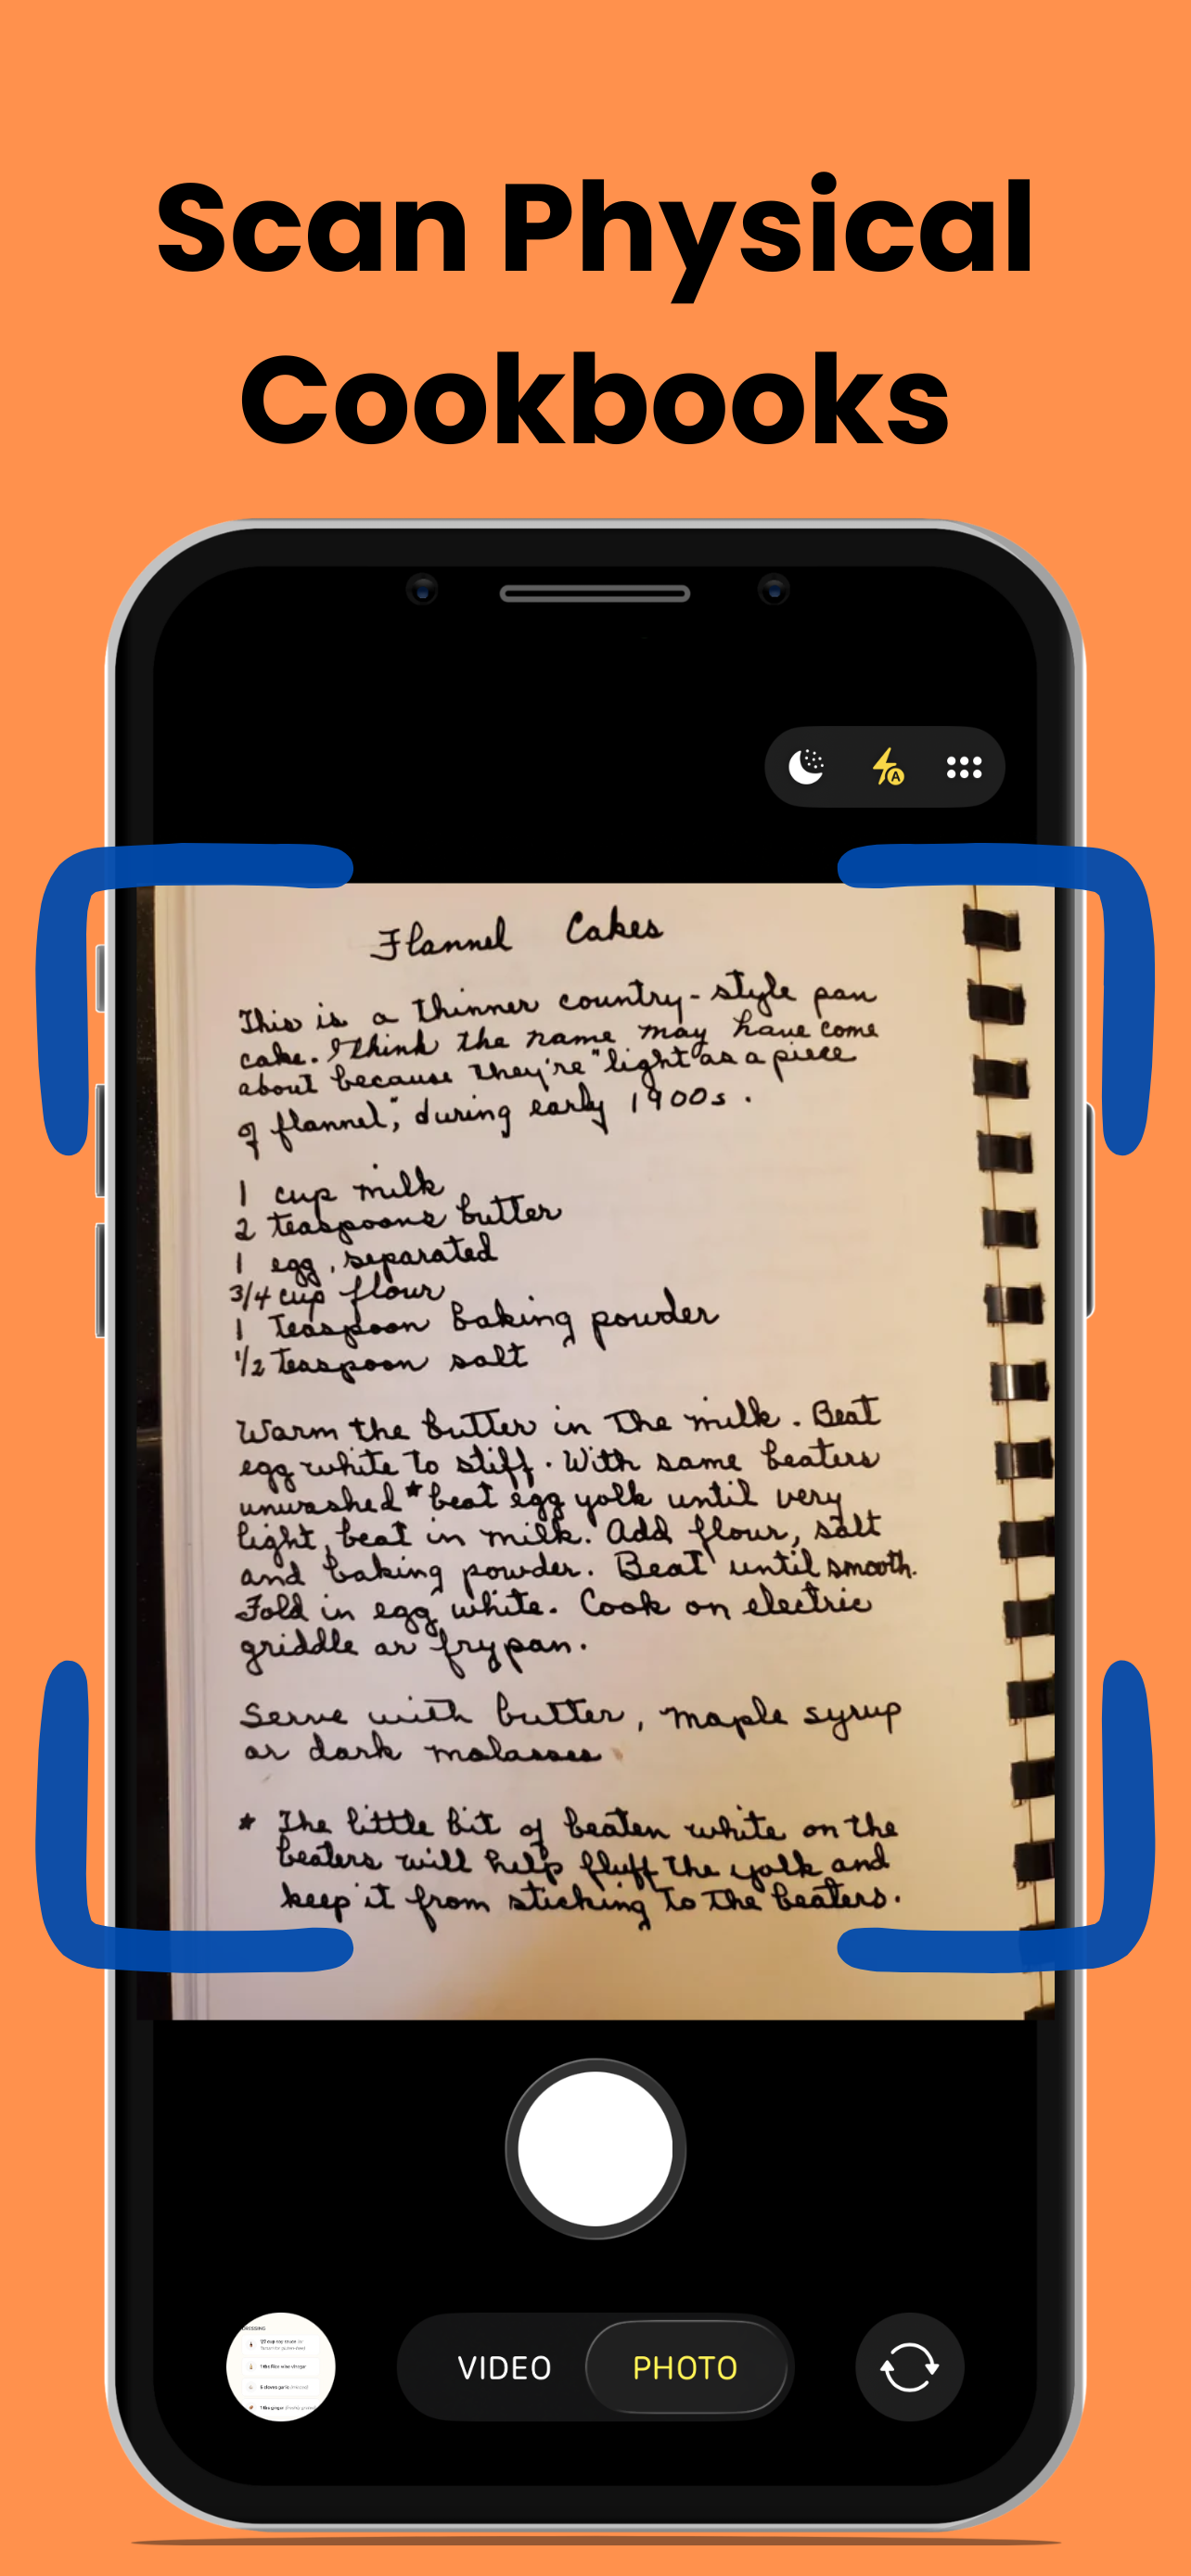 Scan Physical
Cookbooks
Flannel Cakes
This is a thinner country-style pan
cake. I think the name may have come
about because they're "light as a piece
of flannel", during early 1900s.
1 cup milk
2 teaspoons butter
1 egg, separated
3/4 cup flour
1 Teaspoon baking powder
1/2 Teaspoon salt
Warm the butter in the milk. Beat
egg white to stiff. With same beaters
unwashed* beat egg yolk until very
light, beat in milk. Add flour, salt
and baking powder. Beat until smooth.
Fold in egg white. Cook on electric
griddle or frypan.
Serve with butter, maple syrup
or dark molasses
* The little bit of beaten white on the
beaters will help fluff the yolk and
keep it from sticking to the beaters.
VIDEO PHOTO